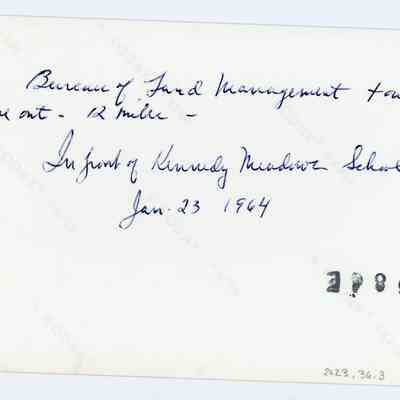 Bureau of Land Management tow
me out - 12 miles -
In front of Kennedy Meadows School
Jan. 23 1964
2023.36.3